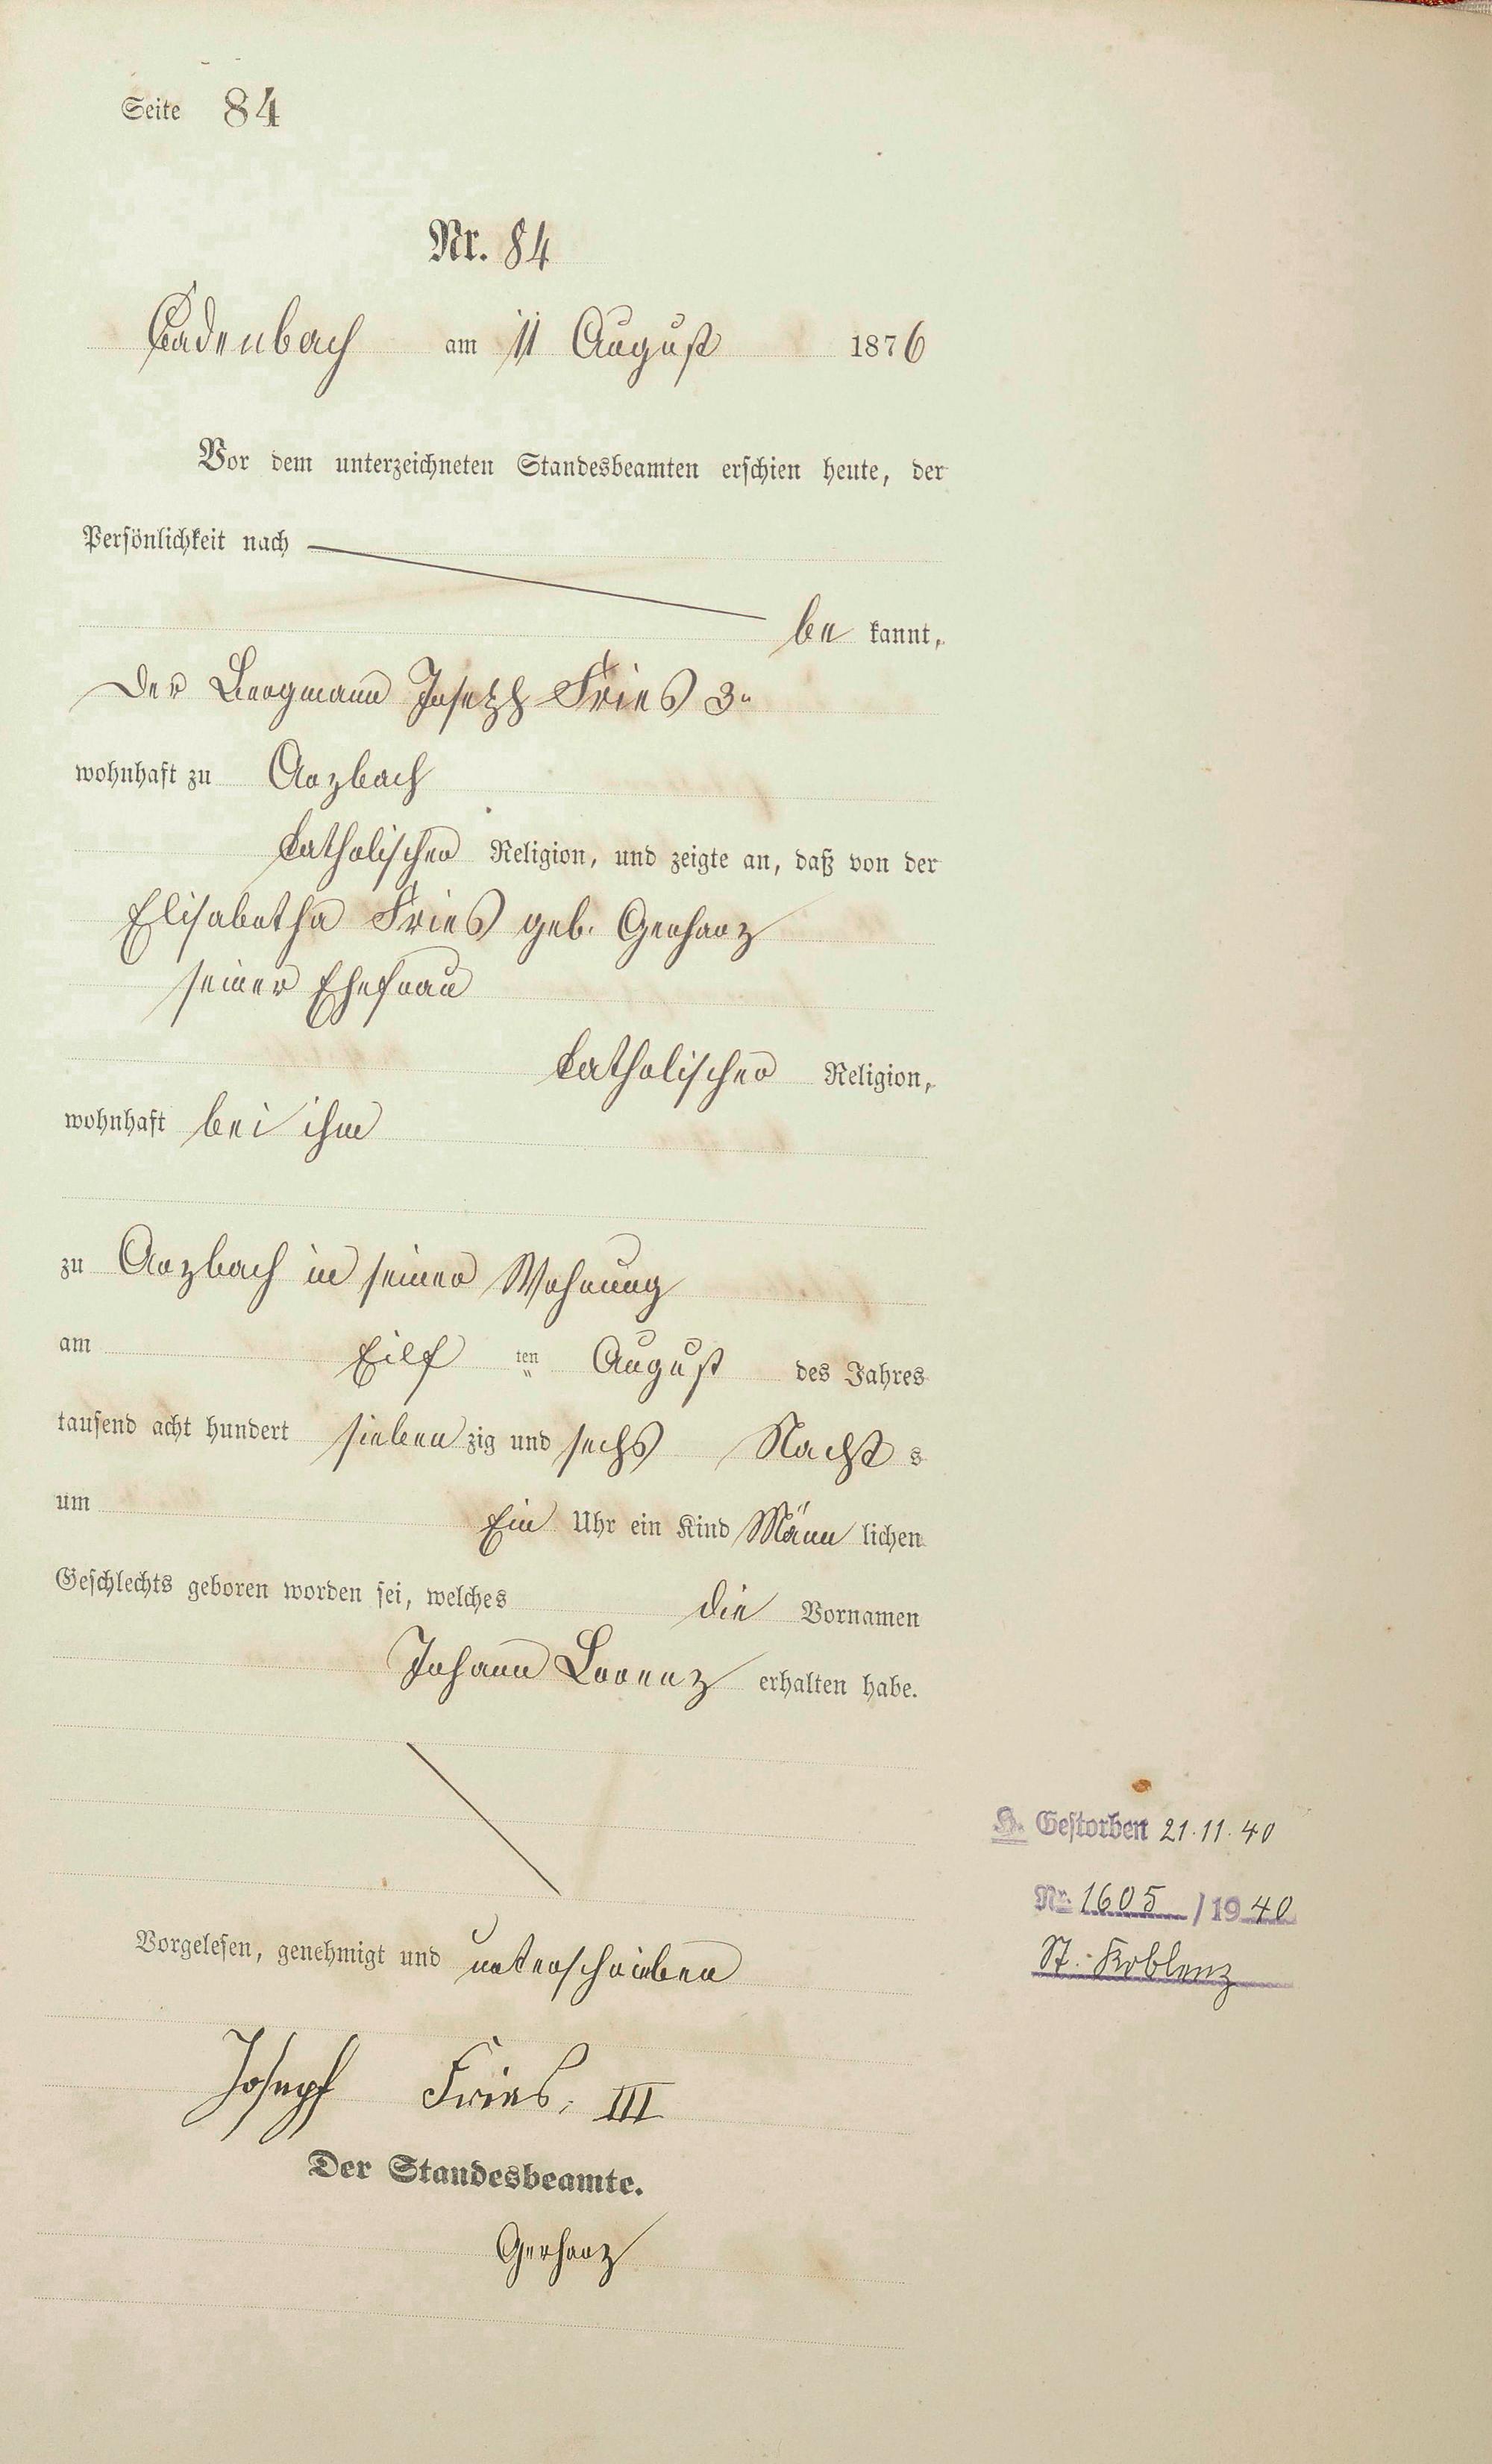 Seite 84
Nr. 84
Cadenbach am 11 August 1876
Vor dem unterzeichneten Standesbeamten erschien heute, der
Persönlichkeit nach
be kannt,
der Bergmann Joseph Fries 3"
wohnhaft zu Arzbach
katholischer Religion, und zeigte an, daß von der
Elisabetha Fries geb. Gerharz
seiner Ehefrau
katholischer Religion,
wohnhaft bei ihm
zu Arzbach in seiner Wohnung
am Eilf ten August des Jahres
tausend acht hundert sieben zig und sechs Nacht s
um Ein Uhr ein Kind Männ lichen
Geschlechts geboren worden sei, welches die Vornamen
Johann Lorenz erhalten habe.
Vorgelesen, genehmigt und unterschrieben
Joseph Fries. III
Der Standesbeamte.
Gerharz
H. Gestorben 21.11.40
Nr. 1605 / 1940
St. Koblenz